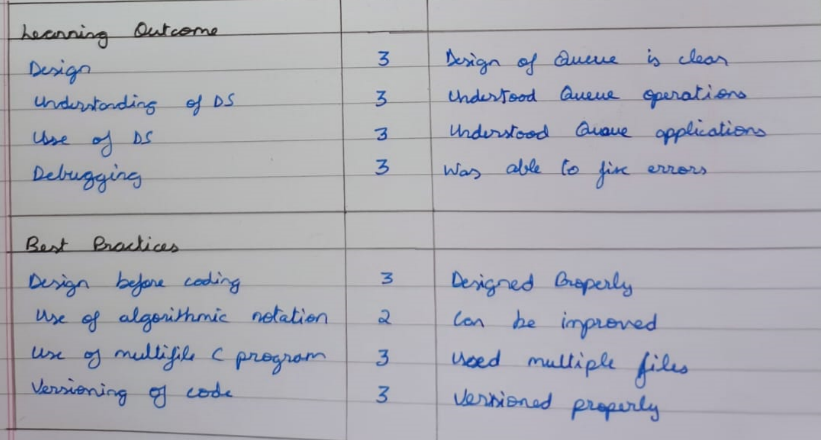 Learning Outcome
Design 3 Design of Queue is clear
Understanding of DS 3 Understood Queue operations
Use of DS 3 Understood Queue applications
Debugging 3 Was able to fix errors
Best Practices
Design before coding 3 Designed Properly
Use of algorithmic notation 2 Can be improved
Use of multifile C program 3 Used multiple files
Versioning of code 3 Versioned properly